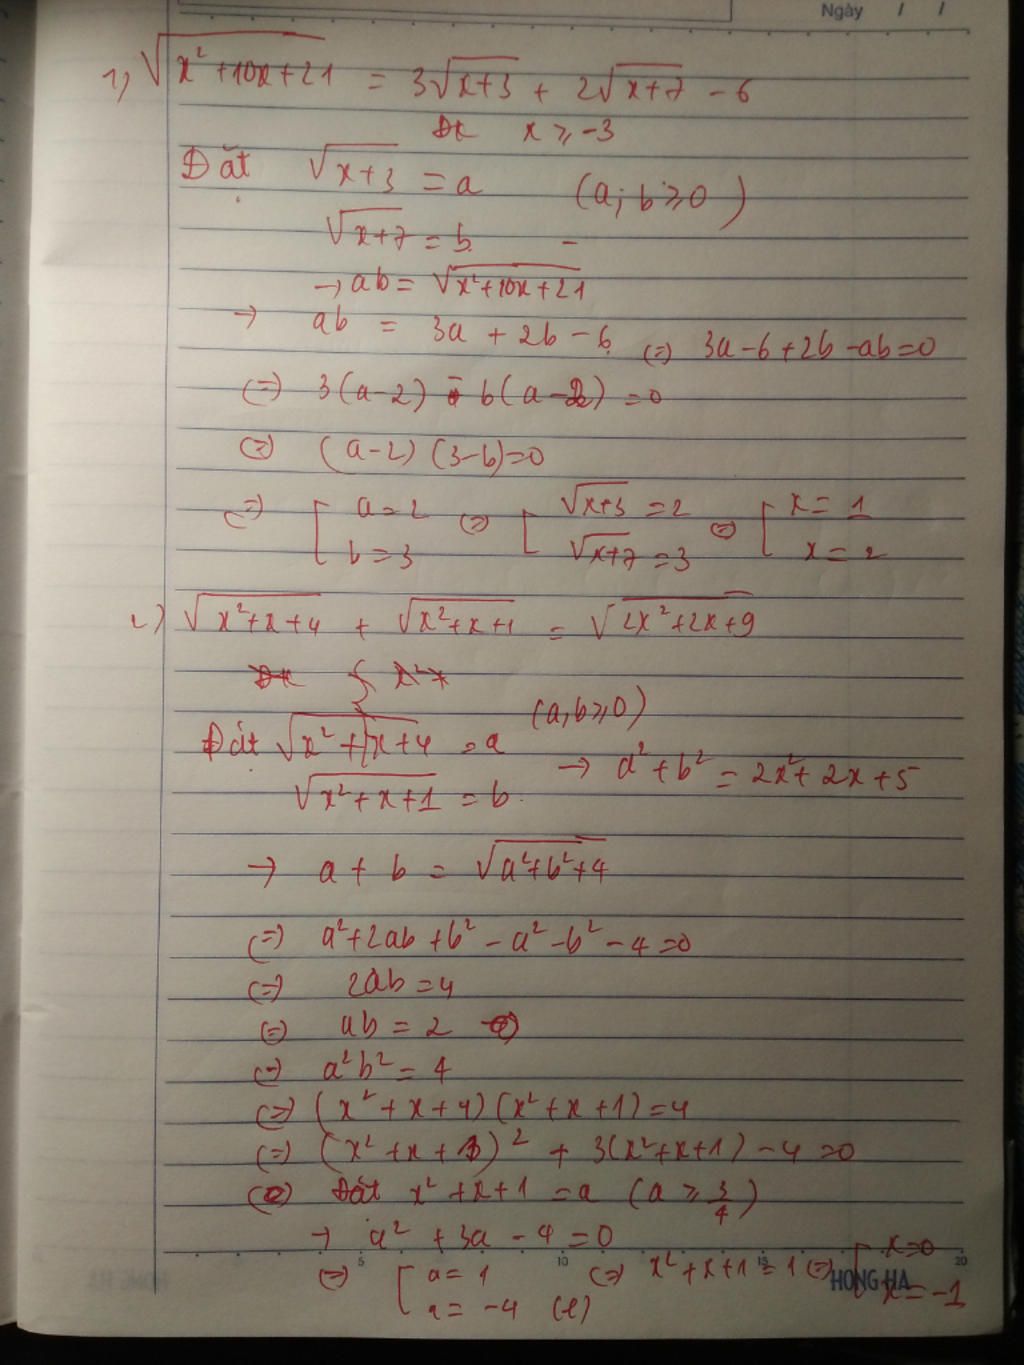 Ngày / /
1) √(x²+10x+21) = 3√(x+3) + 2√(x+7) - 6
Đk x ≥ -3
Đặt √(x+3) = a (a; b ≥ 0)
√(x+7) = b
→ ab = √(x²+10x+21)
→ ab = 3a + 2b - 6 (=) 3a - 6 + 2b - ab = 0
(=) 3(a-2) - b(a-2) = 0
(=) (a-2)(3-b) = 0
(=) [ a = 2 (=) [ √(x+3) = 2 (=) [ x = 1
b = 3 √(x+7) = 3 x = 2
2) √(x²+x+4) + √(x²+x+1) = √(2x²+2x+9)
Đặt √(x²+x+4) = a (a, b ≥ 0)
√(x²+x+1) = b → a² + b² = 2x² + 2x + 5
→ a + b = √(a²+b²+4)
(=) a² + 2ab + b² - a² - b² - 4 = 0
(=) 2ab = 4
(=) ab = 2
(=) a²b² = 4
(=) (x²+x+4)(x²+x+1) = 4
(=) (x²+x+1)² + 3(x²+x+1) - 4 = 0
Đặt x²+x+1 = a (a ≥ 3/4)
→ a² + 3a - 4 = 0
(=) [ a = 1 (=) x²+x+1 = 1 (=) [ x = 0
a = -4 (l) x = -1
5 10 15 20
HONG HA